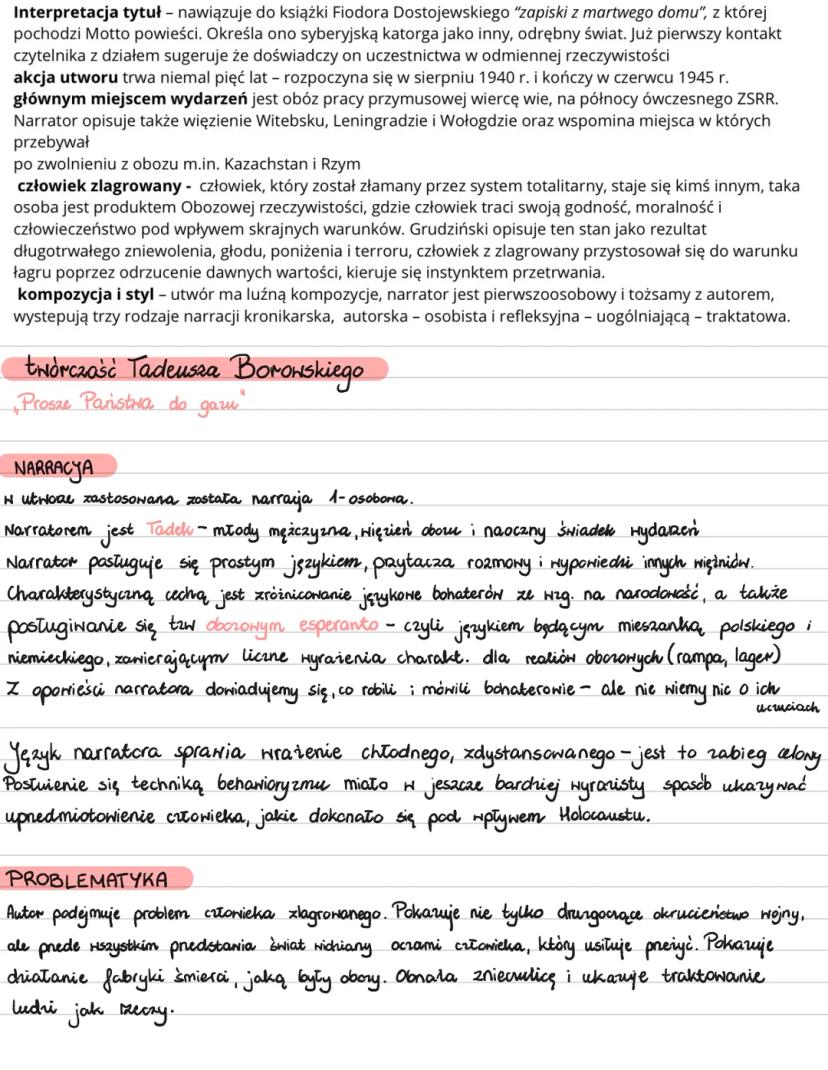 Interpretacja tytuł – nawiązuje do książki Fiodora Dostojewskiego “zapiski z martwego domu”, z której
pochodzi Motto powieści. Określa ono syberyjską katorga jako inny, odrębny świat. Już pierwszy kontakt
czytelnika z działem sugeruje że doświadczy on uczestnictwa w odmiennej rzeczywistości
akcja utworu trwa niemal pięć lat – rozpoczyna się w sierpniu 1940 r. i kończy w czerwcu 1945 r.
głównym miejscem wydarzeń jest obóz pracy przymusowej wiercę wie, na północy ówczesnego ZSRR.
Narrator opisuje także więzienie Witebsku, Leningradzie i Wołogdzie oraz wspomina miejsca w których
przebywał
po zwolnieniu z obozu m.in. Kazachstan i Rzym
człowiek zlagrowany - człowiek, który został złamany przez system totalitarny, staje się kimś innym, taka
osoba jest produktem Obozowej rzeczywistości, gdzie człowiek traci swoją godność, moralność i
człowieczeństwo pod wpływem skrajnych warunków. Grudziński opisuje ten stan jako rezultat
długotrwałego zniewolenia, głodu, poniżenia i terroru, człowiek z zlagrowany przystosował się do warunku
łagru poprzez odrzucenie dawnych wartości, kieruje się instynktem przetrwania.
kompozycja i styl – utwór ma luźną kompozycje, narrator jest pierwszoosobowy i tożsamy z autorem,
wystepują trzy rodzaje narracji kronikarska, autorska – osobista i refleksyjna – uogólniającą – traktatowa.
twórczość Tadeusza Borowskiego
„Prosze Państwa do gazu"
NARRACJA
w utworze zastosowana została narracja 1-osobowa.
Narratorem jest Tadek – młody mężczyzna, więzień obozu i naoczny świadek wydarzeń
Narrator posługuje się prostym językiem, przytacza rozmowy i wypowiedzi innych więźniów.
Charakterystyczną cechą jest zróżnicowanie językowe bohaterów ze wzg. na narodowość, a także
posługiwanie się tzw obozowym esperanto – czyli językiem będącym mieszanką polskiego i
niemieckiego, zawierającym liczne wyrażenia charakt. dla realiów obozowych (rampa, lager)
Z opowieści narratora dowiadujemy się, co robili i mówili bohaterowie – ale nie wiemy nic o ich
uczuciach
Język narratora sprawia wrażenie chłodnego, zdystansowanego – jest to zabieg celowy
Posłużenie się techniką behawioryzmu miało w jeszcze bardziej wyrazisty sposób ukazywać
uprzedmiotowienie człowieka, jakie dokonało się pod wpływem Holocaustu.
PROBLEMATYKA
Autor podejmuje problem człowieka zlagrowanego. Pokazuje nie tylko druzgocące okrucieństwo wojny,
ale przede wszystkim przedstawia świat widziany oczami człowieka, który usiłuje przeżyć. Pokazuje
działanie fabryki śmierci, jaką były obozy. Obnaża znieczulicę i ukazuje traktowanie
ludzi jak rzeczy.